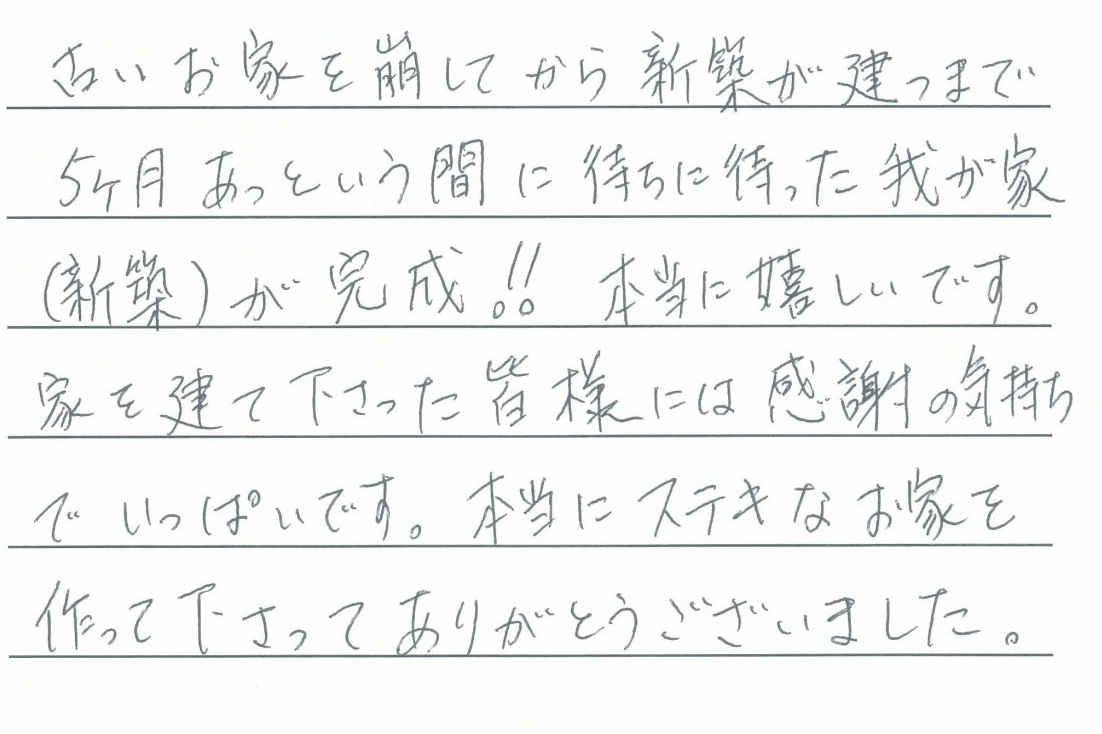 古いお家を崩してから新築が建つまで
5ヶ月あっという間に待ちに待った我が家
(新築)が完成!! 本当に嬉しいです。
家を建て下さった皆様には感謝の気持ち
でいっぱいです。本当にステキなお家を
作って下さってありがとうございました。